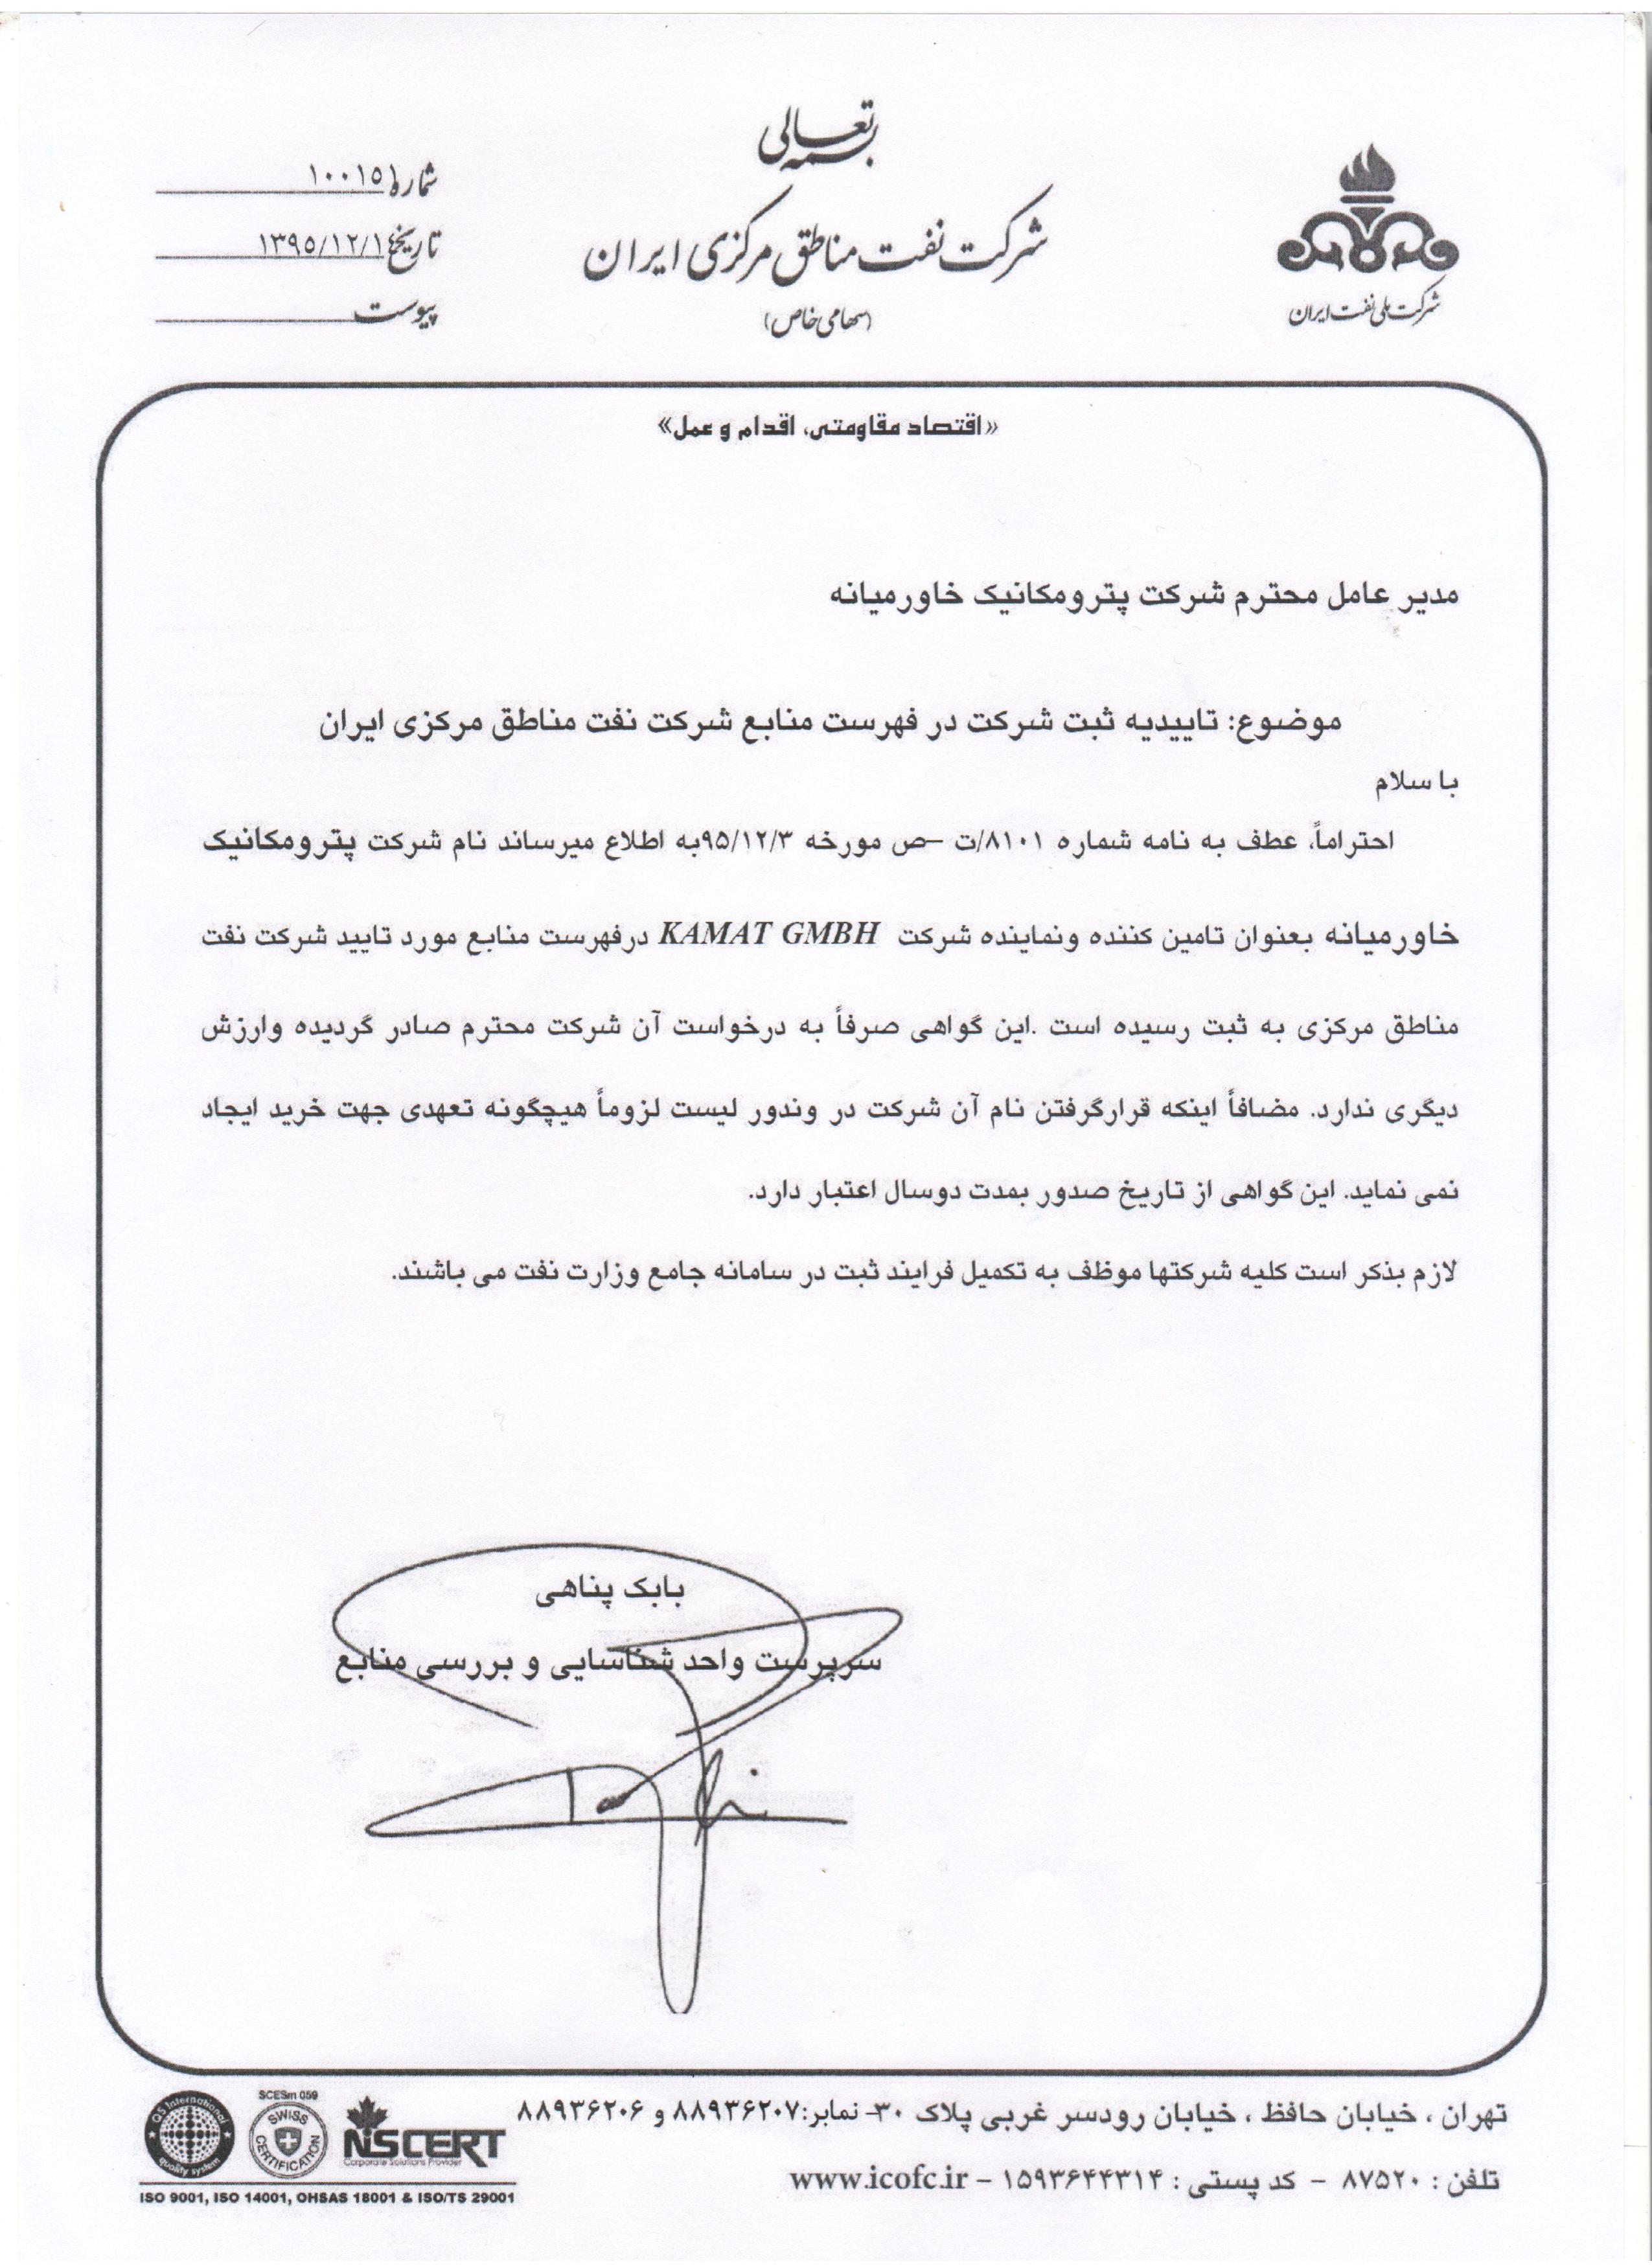 بسمه تعالی
شرکت نفت مناطق مرکزی ایران
(سهامی خاص)
شرکت ملی نفت ایران
شماره ۱۰۰۱۵
تاریخ ۱۳۹۵/۱۲/۱
پیوست
«اقتصاد مقاومتی، اقدام و عمل»
مدیر عامل محترم شرکت پترومکانیک خاورمیانه
موضوع: تاییدیه ثبت شرکت در فهرست منابع شرکت نفت مناطق مرکزی ایران
با سلام
احتراماً، عطف به نامه شماره ۸۱۰۱/ت –ص مورخه ۹۵/۱۲/۳به اطلاع میرساند نام شرکت پترومکانیک
خاورمیانه بعنوان تامین کننده ونماینده شرکت KAMAT GMBH درفهرست منابع مورد تایید شرکت نفت
مناطق مرکزی به ثبت رسیده است .این گواهی صرفاً به درخواست آن شرکت محترم صادر گردیده وارزش
دیگری ندارد. مضافاً اینکه قرارگرفتن نام آن شرکت در وندور لیست لزوماً هیچگونه تعهدی جهت خرید ایجاد
نمی نماید. این گواهی از تاریخ صدور بمدت دوسال اعتبار دارد.
لازم بذکر است کلیه شرکتها موظف به تکمیل فرایند ثبت در سامانه جامع وزارت نفت می باشند.
بابک پناهی
سرپرست واحد شناسایی و بررسی منابع
تهران ، خیابان حافظ ، خیابان رودسر غربی پلاک ۳۰- نمابر:۸۸۹۳۶۲۰۷ و ۸۸۹۳۶۲۰۶
تلفن : ۸۷۵۲۰ – کد پستی : ۱۵۹۳۶۴۴۳۱۴ – www.icofc.ir
QS International
quality system
SCESm 059
SWISS
CERTIFICATION
NISCERT
Corporate Solutions Provider
ISO 9001, ISO 14001, OHSAS 18001 & ISO/TS 29001